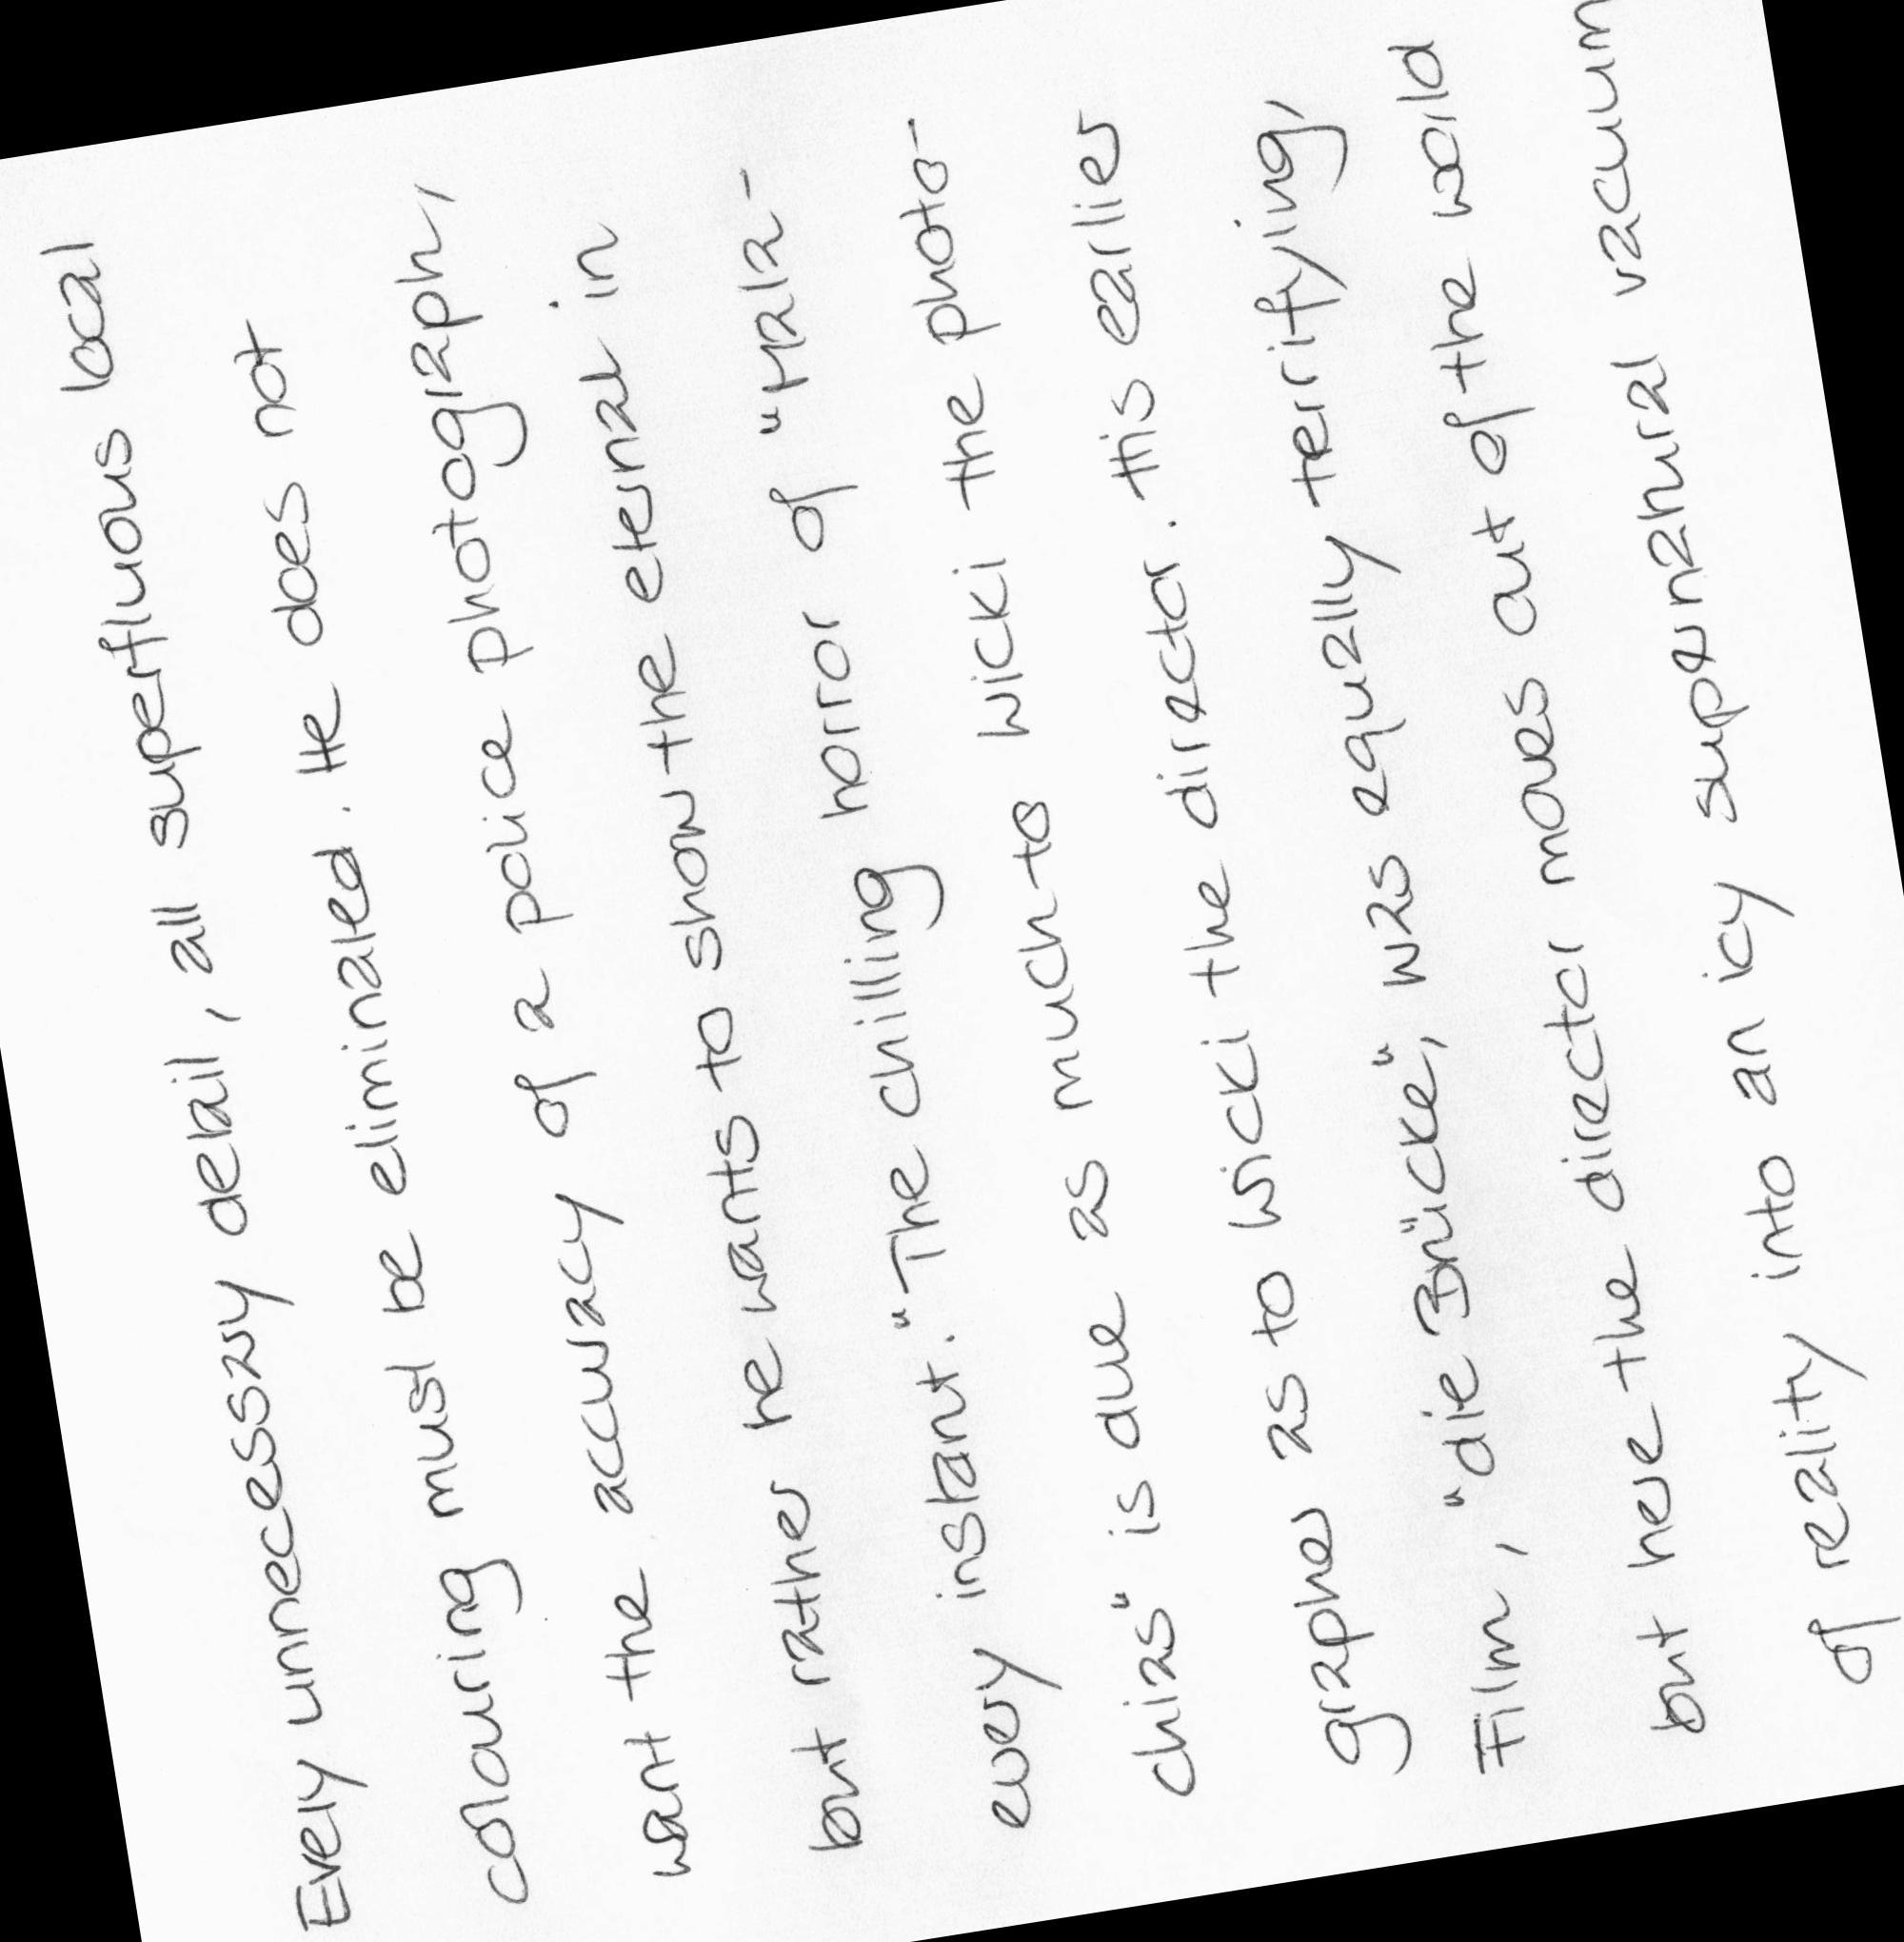 Every unnecessary detail, all superfluous local
colouring must be eliminated. He does not
want the accuracy of a police photograph,
but rather he wants to show the eternal in
every instant." The chilling horror of "Mala-
chias" is due as much to Wicki the photo-
grapher as to Wicki the director. This earlier
Film, "die Brücke", was equally terrifying,
but here the director moves out of the world
of reality into an icy supernatural vacuum